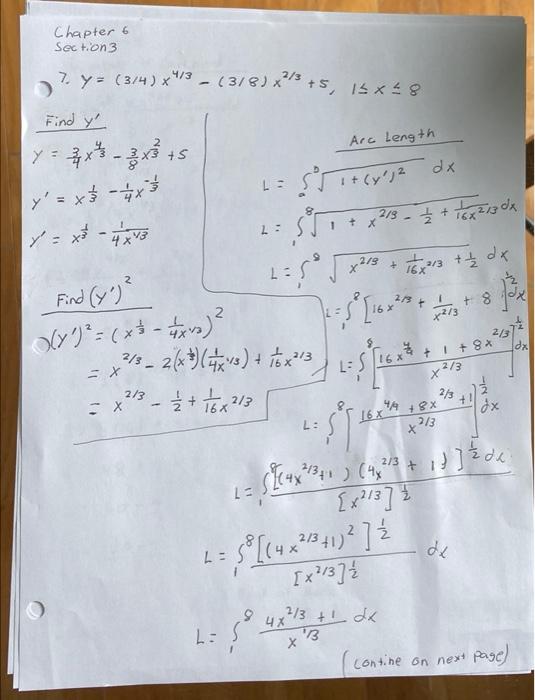 Chapter 6
Section3
7. y = (3/4) x^4/3 - (3/8) x^2/3 + 5, 1 ≤ x ≤ 8
Find y'
y = 3/4 x^4/3 - 3/8 x^2/3 + 5
y' = x^1/3 - 1/4 x^-1/3
y' = x^1/3 - 1/4x^1/3
Find (y')^2
(y')^2 = (x^1/3 - 1/4x^1/3)^2
= x^2/3 - 2(x^1/3)(1/4x^1/3) + 1/16x^2/3
= x^2/3 - 1/2 + 1/16x^2/3
Arc Length
L = ∫_a^b √1 + (y')^2 dx
L = ∫_1^8 √1 + x^2/3 - 1/2 + 1/16x^2/3 dx
L = ∫_1^8 √x^2/3 + 1/16x^2/3 + 1/2 dx
L = ∫_1^8 [16x^2/3 + 1/x^2/3 + 8]^1/2 dx
L = ∫_1^8 [16x^4/4 + 1 + 8x^2/3 / x^2/3]^1/2 dx
L = ∫_1^8 [16x^4/9 + 8x^2/3 + 1 / x^2/3]^1/2 dx
L = ∫_1^8 [(4x^2/3 + 1)(4x^2/3 + 1)]^1/2 / [x^2/3]^1/2 dx
L = ∫_1^8 [(4x^2/3 + 1)^2]^1/2 / [x^2/3]^1/2 dx
L = ∫_1^8 4x^2/3 + 1 / x^1/3 dx
(contine on next page)